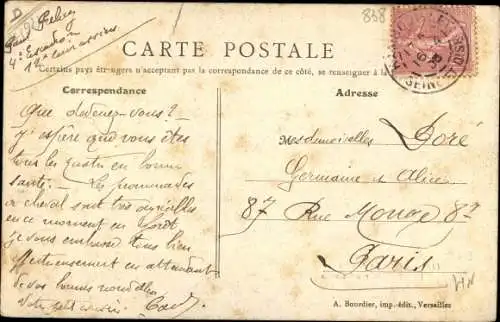 D
Paul Felix
4e Escadron
12e Cuirassiers
858
CARTE POSTALE
Certains pays étrangers n'acceptant pas la correspondance de ce côté, se renseigner à la
Correspondance
Adresse
Que devenez-vous ?
J'espère que vous êtes
tous les quatre en bonne
santé. — Les promenades
à cheval sont très agréables
en ce moment en forêt
Je vous embrasse tous bien
affectueusement en attendant
de vos bonnes nouvelles
Votre petit cousin Paul
Mesdemoiselles Doré
Germaine et Alice
87 Rue Monge 87
Paris
A. Bourdier, imp.-édit., Versailles